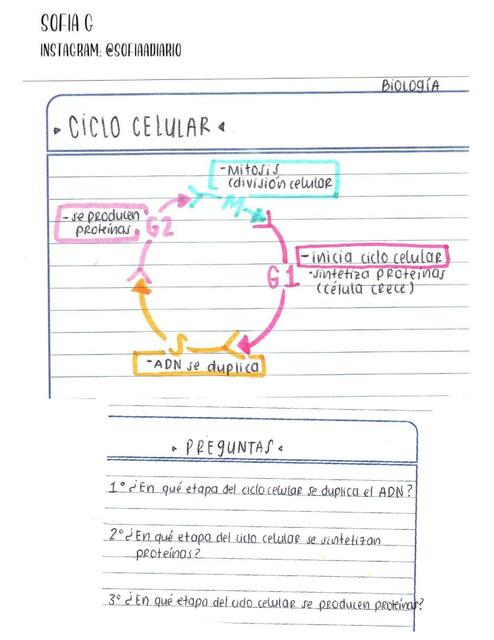 SOFIA G
INSTAGRAM: @SOFIAADIARIO
BIOLOGÍA
CICLO CELULAR
- Mitosis
(división celular)
M
- se producen
proteínas
G2
G1
- inicia ciclo celular
- sintetiza proteínas
(célula crece)
S
- ADN se duplica
PREGUNTAS
1° ¿En qué etapa del ciclo celular se duplica el ADN?
2° ¿En qué etapa del ciclo celular se sintetizan
proteínas?
3° ¿En qué etapa del ciclo celular se producen proteínas?